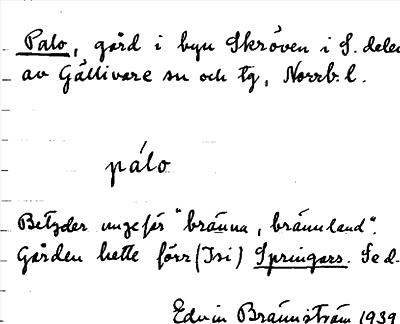 Palo, gård i byn Skröven i S. delen
av Gällivare sn och tg, Norrb. l.
pálo
Betyder ungefär "bränna, brännland".
Gården hette förr (Isi) Springars. Se d.
Edvin Brännström 1939